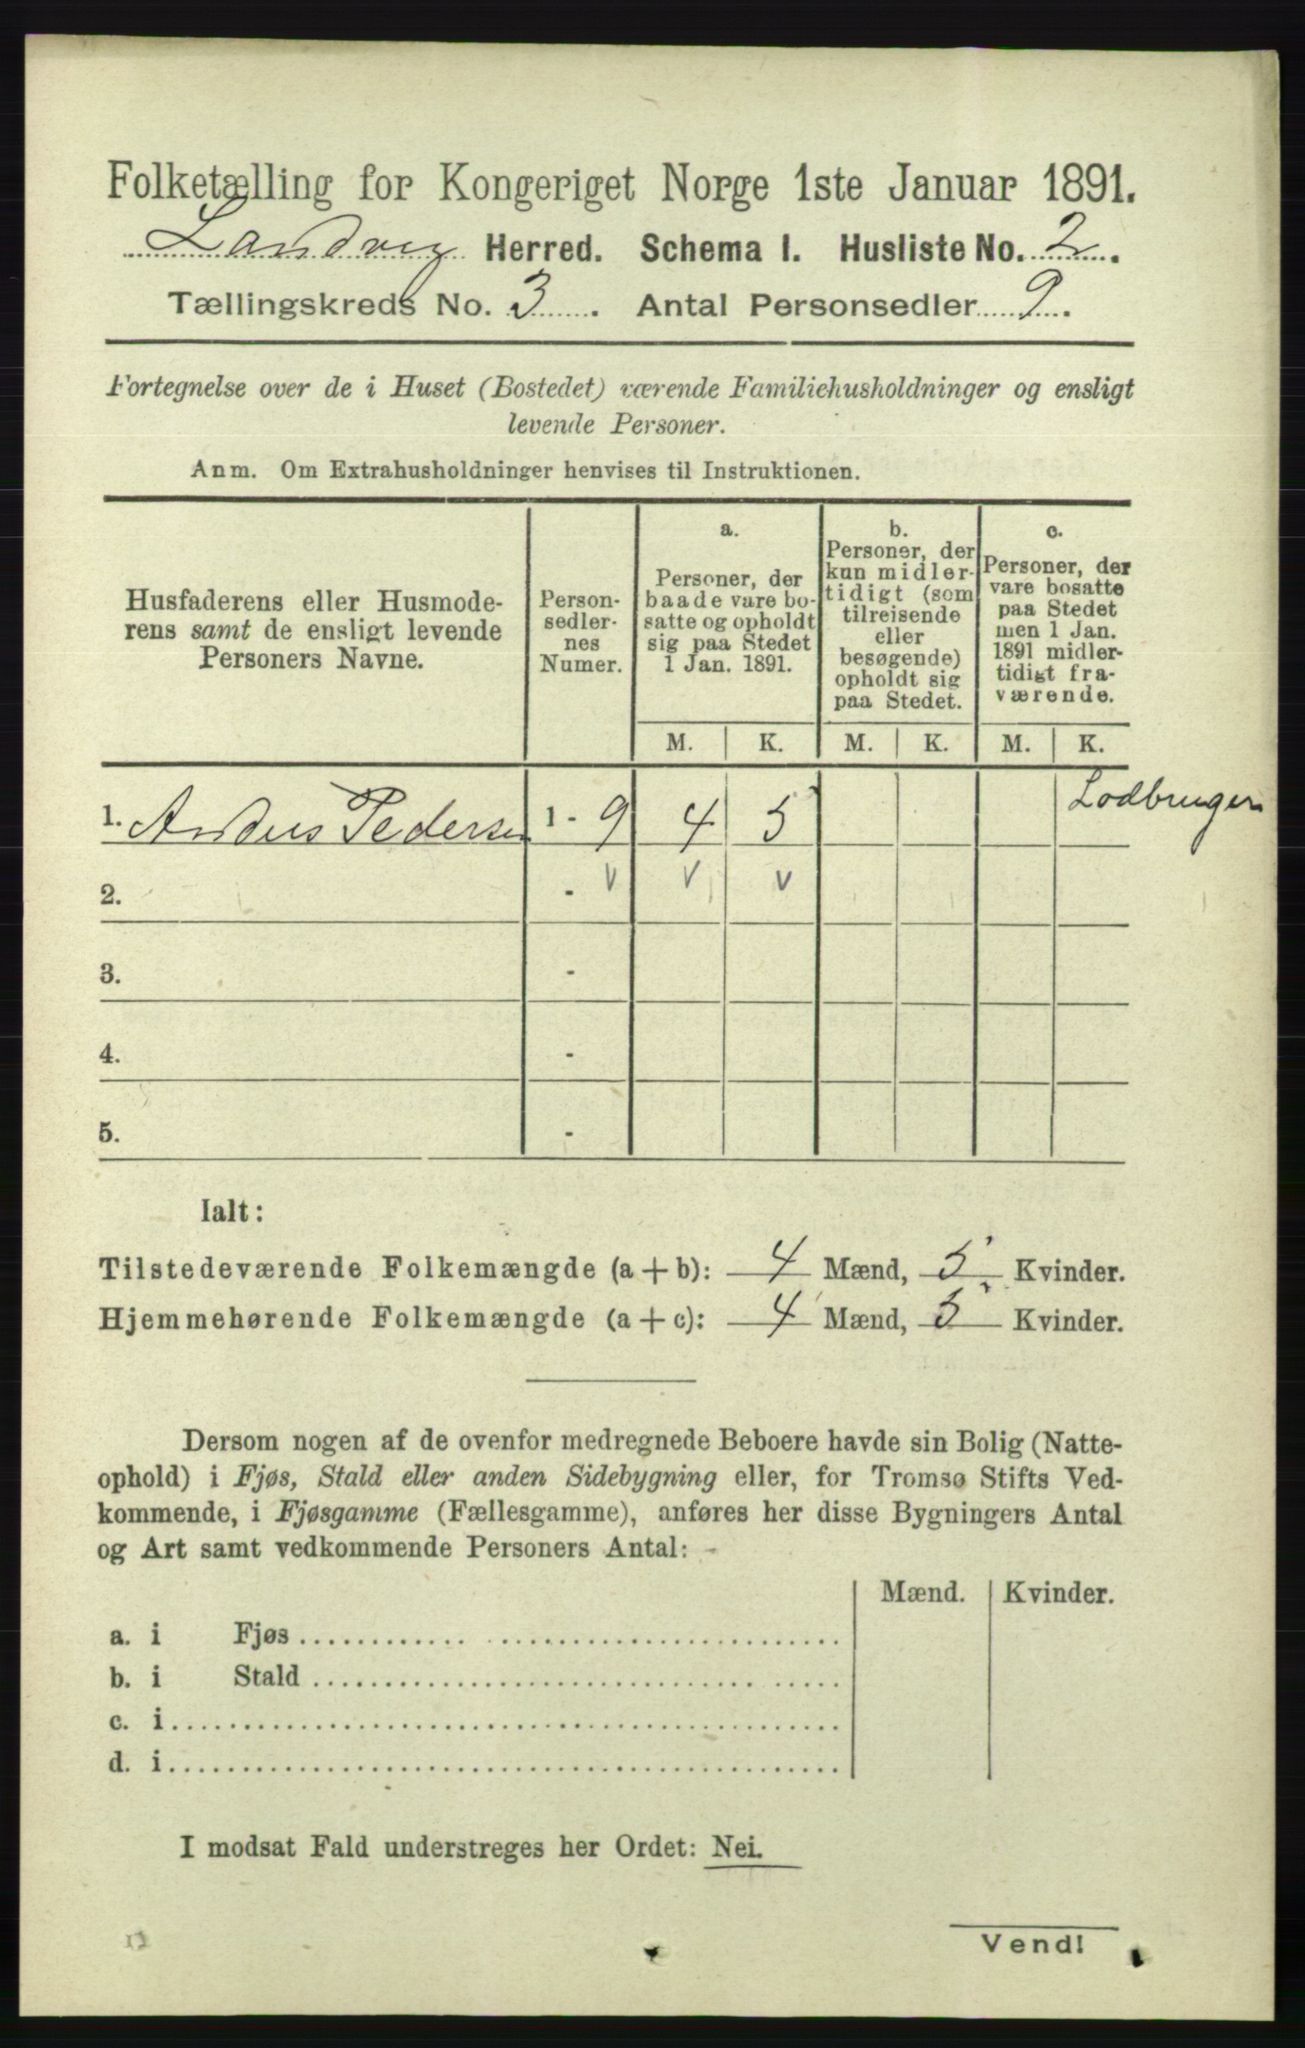 Folketælling for Kongeriget Norge 1ste Januar 1891.
Landvig Herred. Schema I. Husliste No. 2.
Tællingskreds No. 3. Antal Personsedler 9.
Fortegnelse over de i Huset (Bostedet) værende Familiehusholdninger og ensligt
levende Personer.
Anm. Om Extrahusholdninger henvises til Instruktionen.
Husfaderens eller Husmode-
rens samt de ensligt levende
Personers Navne.
Person-
sedler-
nes
Numer.
a.
Personer, der
baade vare bo-
satte og opholdt
sig paa Stedet
1 Jan. 1891.
b.
Personer, der
kun midler-
tidigt (som
tilreisende
eller
besøgende)
opholdt sig
paa Stedet.
c.
Personer, der
vare bosatte
paa Stedet
men 1 Jan.
1891 midler-
tidigt fra-
værende.
M. K. M. K. M. K.
1. Andus Pedersen 1 - 9 4 5 Lodbruger
2. - v v v
3. -
4. -
5. -
Ialt:
Tilstedeværende Folkemængde (a + b): 4 Mænd, 5 Kvinder.
Hjemmehørende Folkemængde (a + c): 4 Mænd, 5 Kvinder.
Dersom nogen af de ovenfor medregnede Beboere havde sin Bolig (Natte-
ophold) i Fjøs, Stald eller anden Sidebygning eller, for Tromsø Stifts Ved-
kommende, i Fjøsgamme (Fællesgamme), anføres her disse Bygningers Antal
og Art samt vedkommende Personers Antal: -
Mænd. Kvinder.
a. i Fjøs
b. i Stald
c. i
d. i
I modsat Fald understreges her Ordet: Nei.
12
Vend!